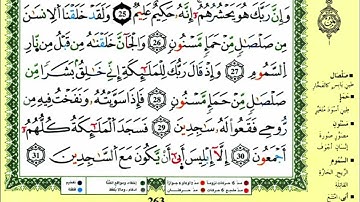 وَإِنَّ رَبَّكَ هُوَ يَحْشُرُهُمْ إِنَّهُ حَكِيمٌ عَلِيمٌ 25 وَلَقَدْ خَلَقْنَا الْإِنسَانَ
مِن صَلْصَالٍ مِّنْ حَمَإٍ مَّسْنُونٍ 26 وَالْجَانَّ خَلَقْنَاهُ مِن قَبْلُ مِن نَّارِ
السَّمُومِ 27 وَإِذْ قَالَ رَبُّكَ لِلْمَلَائِكَةِ إِنِّي خَالِقٌ بَشَرًا مِّن
صَلْصَالٍ مِّنْ حَمَإٍ مَّسْنُونٍ 28 فَإِذَا سَوَّيْتُهُ وَنَفَخْتُ فِيهِ مِن
رُّوحِي فَقَعُوا لَهُ سَاجِدِينَ 29 فَسَجَدَ الْمَلَائِكَةُ كُلُّهُمْ
أَجْمَعُونَ 30 إِلَّا إِبْلِيسَ أَبَىٰ أَن يَكُونَ مَعَ السَّاجِدِينَ 31
صَلْصَال
حَمَإٍ
مَسْنُون
السَّمُوم
263